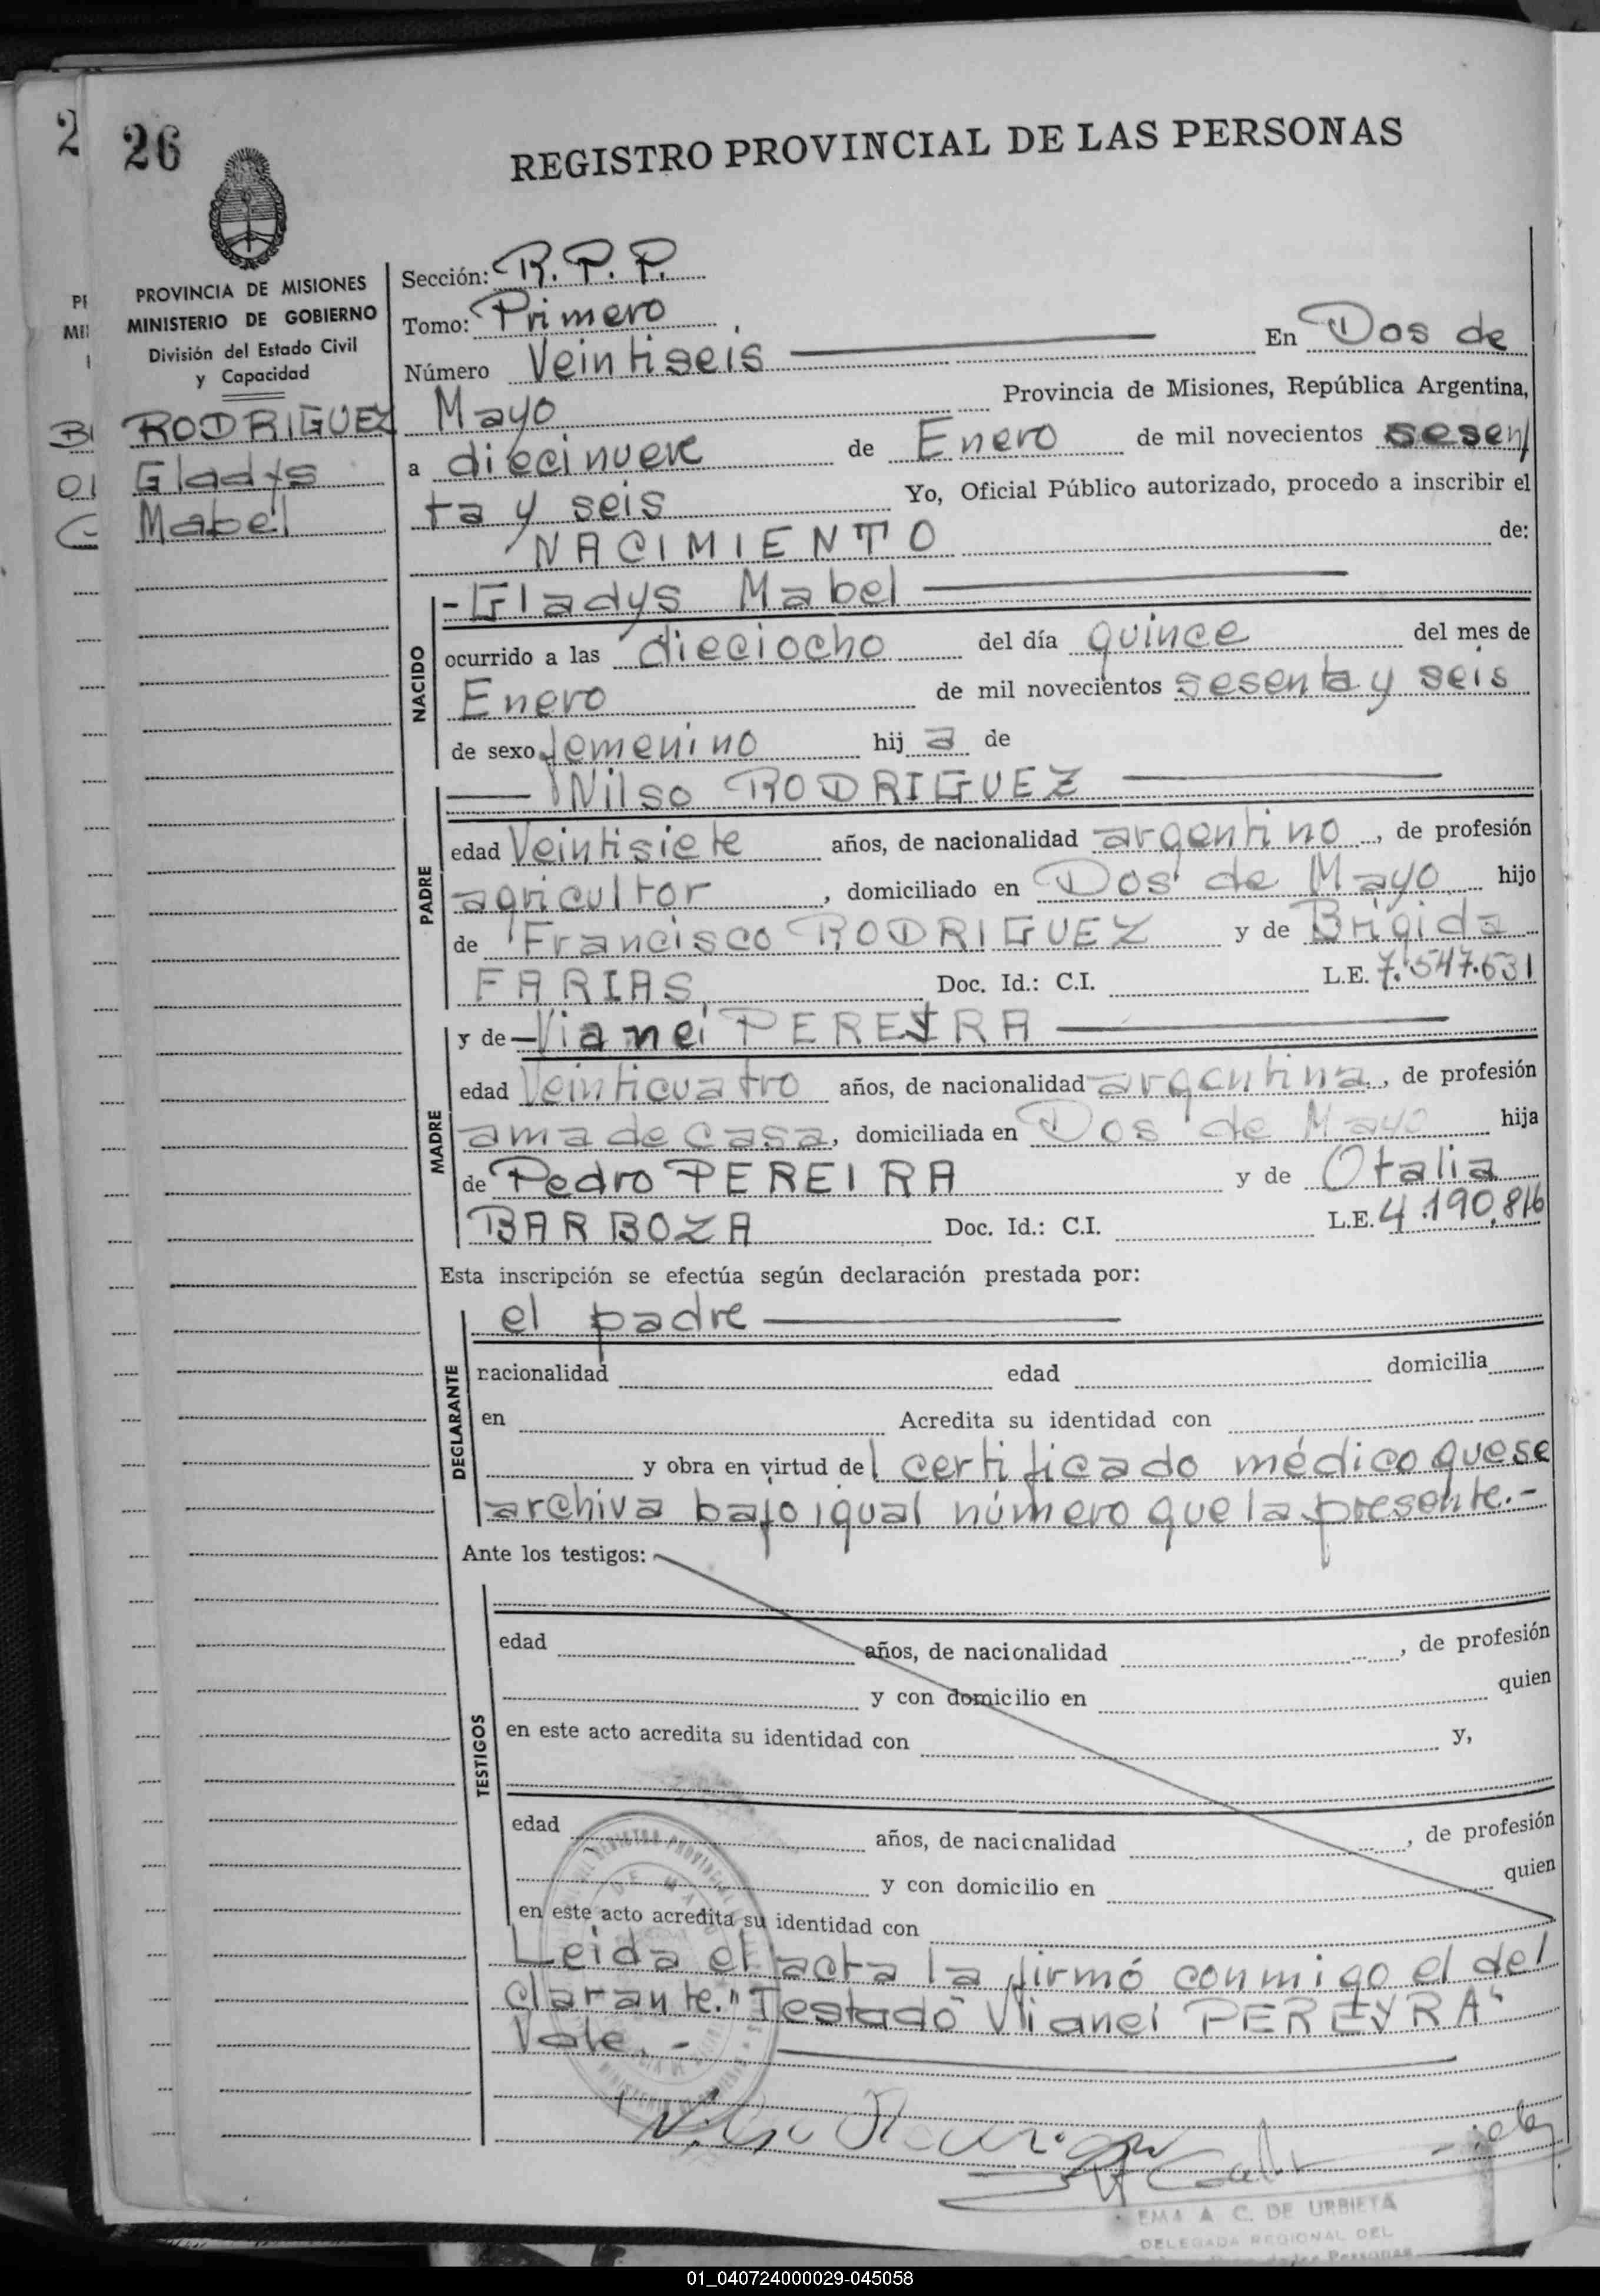 26
REGISTRO PROVINCIAL DE LAS PERSONAS
PROVINCIA DE MISIONES
MINISTERIO DE GOBIERNO
División del Estado Civil
y Capacidad
RODRIGUEZ
Gladys
Mabel
Sección: R. P. P.
Tomo: Primero
Número Veintiseis En Dos de
Mayo Provincia de Misiones, República Argentina,
a diecinueve de Enero de mil novecientos sesen
ta y seis Yo, Oficial Público autorizado, procedo a inscribir el
NACIMIENTO de:
NACIDO
- Gladys Mabel
ocurrido a las dieciocho del día quince del mes de
Enero de mil novecientos sesenta y seis
de sexo femenino hij a de
PADRE
Nilso RODRIGUEZ
edad Veintisiete años, de nacionalidad argentino, de profesión
agricultor, domiciliado en Dos de Mayo hijo
de Francisco RODRIGUEZ y de Brigida
FARIAS Doc. Id.: C.I. L.E. 7.547.631
MADRE
y de - Vianei PEREYRA
edad Veinticuatro años, de nacionalidad argentina, de profesión
ama de casa, domiciliada en Dos de Mayo hija
de Pedro PEREIRA y de Otalia
BARBOZA Doc. Id.: C.I. L.E. 4.190.816
Esta inscripción se efectúa según declaración prestada por:
DECLARANTE
el padre
nacionalidad edad domicilia
en Acredita su identidad con
y obra en virtud del certificado médico que se
archiva bajo igual número que la presente.-
Ante los testigos:
TESTIGOS
edad años, de nacionalidad , de profesión
y con domicilio en quien
en este acto acredita su identidad con y,
edad años, de nacionalidad , de profesión
y con domicilio en quien
en este acto acredita su identidad con
Leida el acta la firmó conmigo el de
clarante. "Testado Vianei PEREYRA"
Vale. -
EMA A. C. DE URBIETA
DELEGADA REGIONAL DEL
01_040724000029-045058